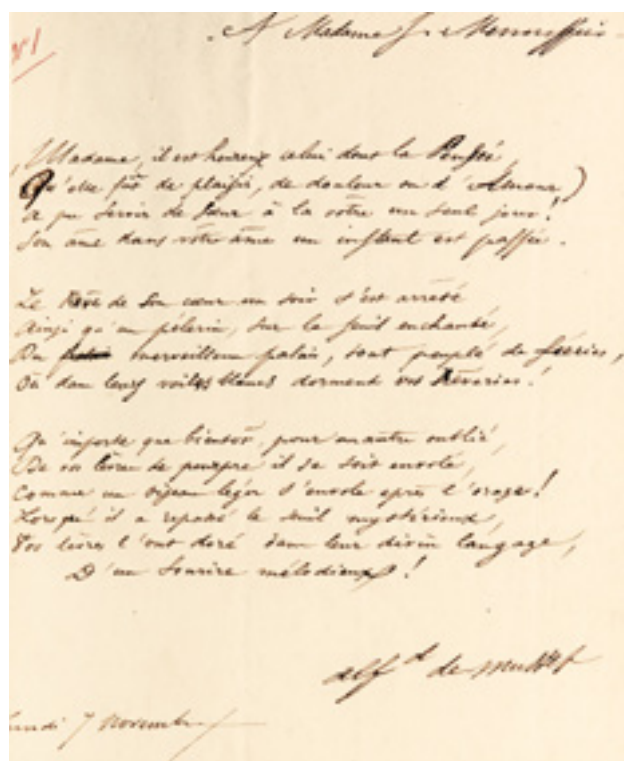 N° 1
A Madame J. Menessier
Madame, il est heureux celui dont la Pensée,
Qu'elle fût de plaisir, de douleur ou d'Amour)
A pu servir de sœur à la vôtre un seul jour!
Son âme dans votre âme un instant est passée.
Le Rêve de son cœur un soir s'est arrêté
Ainsi qu'un pélerin, sur le seuil enchanté,
Du merveilleux palais, tout peuplé de féeries,
Où dans leurs voiles blancs dorment vos Rêveries.
Qu'importe que bientôt, pour un autre oublié,
De vos lèvres de pourpre il se soit envolé,
Comme un oiseau léger s'envole après l'orage!
Lorsqu'il a repassé le seuil mystérieux,
Vos lèvres l'ont doré dans leur divin langage,
D'un sourire mélodieux!
Alf d de Musset
lundi 7 novembre